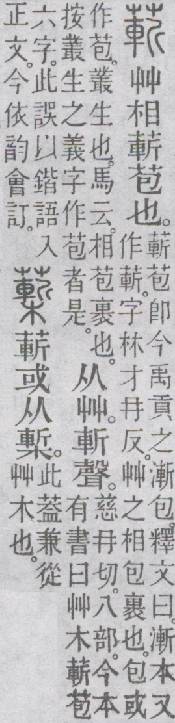 蔪 艸相蔪苞也。
蔪苞即今禹貢之漸包。釋文曰。漸本又
作蔪。字林才冄反。艸之相包裹也。包或
作苞。叢生也。馬云。相苞裹也。
按叢生之義字作苞者是。
从艸。斬聲。
慈冄切。八部。今本
有書曰艸木蔪苞
六字。此誤以鍇語入
正文。今依韵會訂。
𧂮 蔪或从槧。
此葢兼從
艸木也。